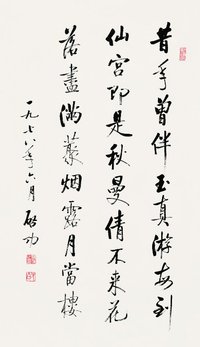 昔年曾伴玉真游每到
仙宮即是秋曼倩不来花
落盡滿藂烟露月當樓
一九七八年六月 啟功